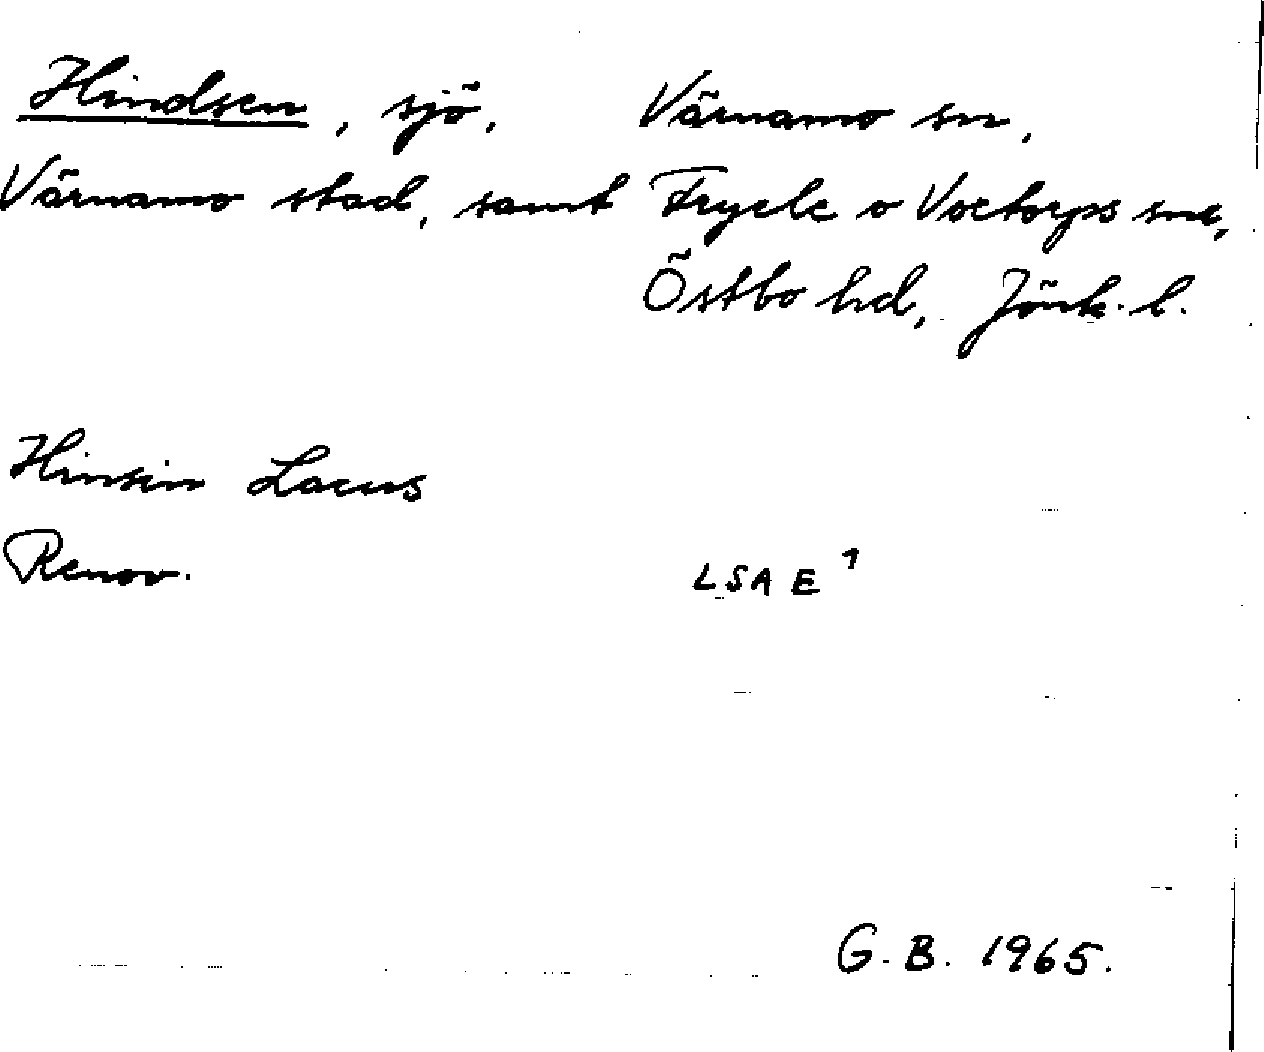 Hindsen, sjö, Värnamo sn,
Värnamo stad, samt Fryele o Voxtorps snr,
Östbo hd, Jönk. l.
Hinsin Lacus
Renov. LSA E 1
G. B. 1965.